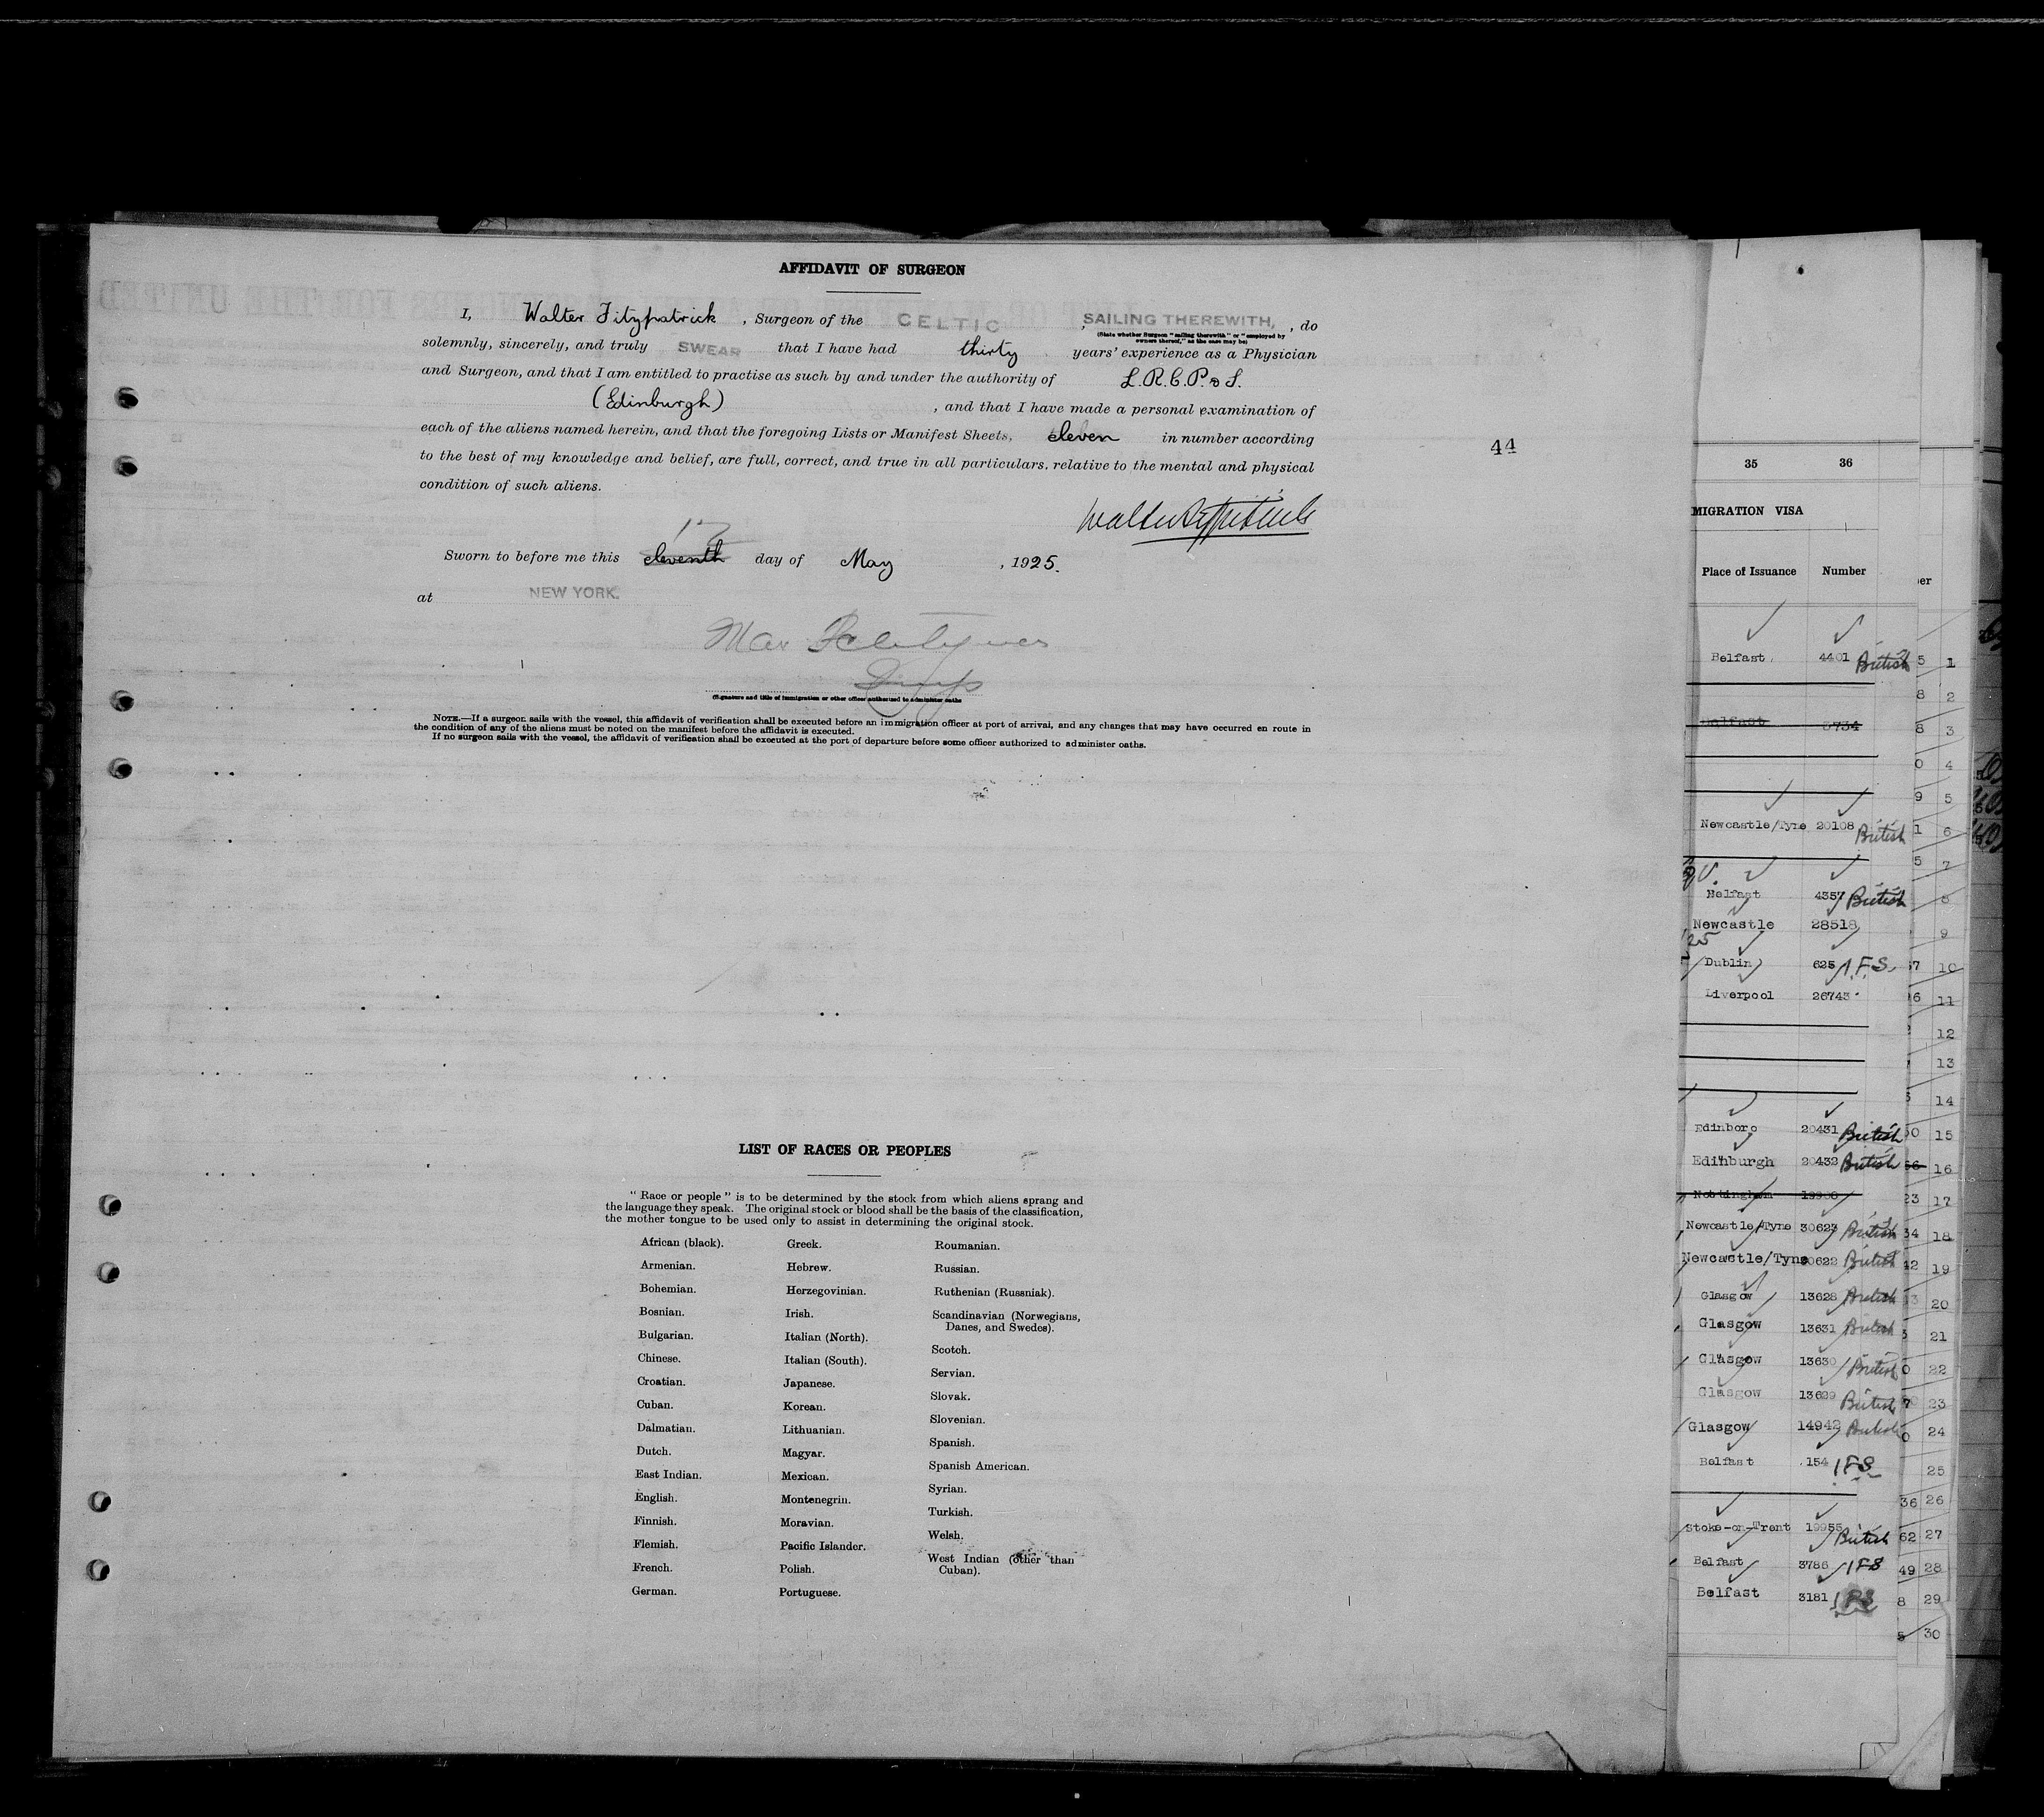 AFFIDAVIT OF SURGEON
I, Walter Fitzpatrick, Surgeon of the CELTIC, SAILING THEREWITH, , do
(State whether Surgeon "sailing therewith" or "employed by
owners thereof," as the case may be)
solemnly, sincerely, and truly SWEAR that I have had thirty years' experience as a Physician
and Surgeon, and that I am entitled to practise as such by and under the authority of L.R.C.P. & S.
(Edinburgh) , and that I have made a personal examination of
each of the aliens named herein, and that the foregoing Lists or Manifest Sheets, eleven in number according
to the best of my knowledge and belief, are full, correct, and true in all particulars, relative to the mental and physical
condition of such aliens.
44
Walter Fitzpatrick
Sworn to before me this eleventh day of May , 1925.
at NEW YORK.
(Signature and title of immigration or other officer authorized to administer oaths
NOTE.—If a surgeon sails with the vessel, this affidavit of verification shall be executed before an immigration officer at port of arrival, and any changes that may have occurred en route in
the condition of any of the aliens must be noted on the manifest before the affidavit is executed.
If no surgeon sails with the vessel, the affidavit of verification shall be executed at the port of departure before some officer authorized to administer oaths.
LIST OF RACES OR PEOPLES
"Race or people" is to be determined by the stock from which aliens sprang and
the language they speak. The original stock or blood shall be the basis of the classification,
the mother tongue to be used only to assist in determining the original stock.
African (black).
Armenian.
Bohemian.
Bosnian.
Bulgarian.
Chinese.
Croatian.
Cuban.
Dalmatian.
Dutch.
East Indian.
English.
Finnish.
Flemish.
French.
German.
Greek.
Hebrew.
Herzegovinian.
Irish.
Italian (North).
Italian (South).
Japanese.
Korean.
Lithuanian.
Magyar.
Mexican.
Montenegrin.
Moravian.
Pacific Islander.
Polish.
Portuguese.
Roumanian.
Russian.
Ruthenian (Russniak).
Scandinavian (Norwegians,
Danes, and Swedes).
Scotch.
Servian.
Slovak.
Slovenian.
Spanish.
Spanish American.
Syrian.
Turkish.
Welsh.
West Indian (other than
Cuban).
35 36
MIGRATION VISA
Place of Issuance Number
er
Belfast 4401 British 5 1
8 2
Belfast 3734 8 3
0 4
9 5
Newcastle/Tyne 20108 British 1 6
5 7
Belfast 4357 British 8
Newcastle 28518 9
Dublin 625 I.F.S. 7 10
Liverpool 26743 6 11
12
13
14
Edinboro 20431 British 50 15
Edinburgh 20432 British 16
Nottingham 19900 23 17
Newcastle/Tyne 30623 British 34 18
Newcastle/Tyne 30622 British 42 19
Glasgow 13628 British 20
Glasgow 13631 British 21
Glasgow 13630 British 0 22
Glasgow 13629 British 7 23
Glasgow 14942 British 0 24
Belfast 154 IFS 25
36 26
Stoke-on-Trent 19955 British 62 27
Belfast 3786 IFS 49 28
Belfast 3181 IFS 8 29
5 30